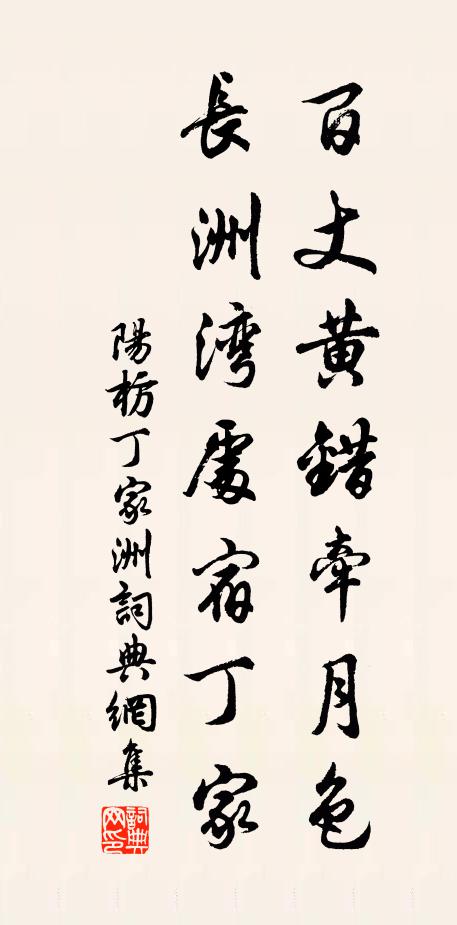 百丈黄錯牽月色
長洲湾處宿丁家
陽枋丁家洲詞典網集
詞典网印